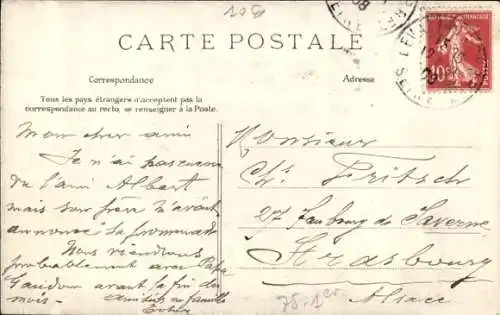 108
08
CARTE POSTALE
Correspondance
Adresse
Tous les pays étrangers n'acceptent pas la
correspondance au recto, se renseigner à la Poste.
10c
Mon cher ami
Je n'ai pas encore
de l'ami Albert
mais son frère m'avait
annoncé sa promenade
Nous viendrons
probablement avec Papa
Gaudou avant la fin du
mois-
Amitiés en famille
Monsieur
Ch. Fritsch
27 Faubourg de Saverne
Strasbourg
Alsace
75-1er